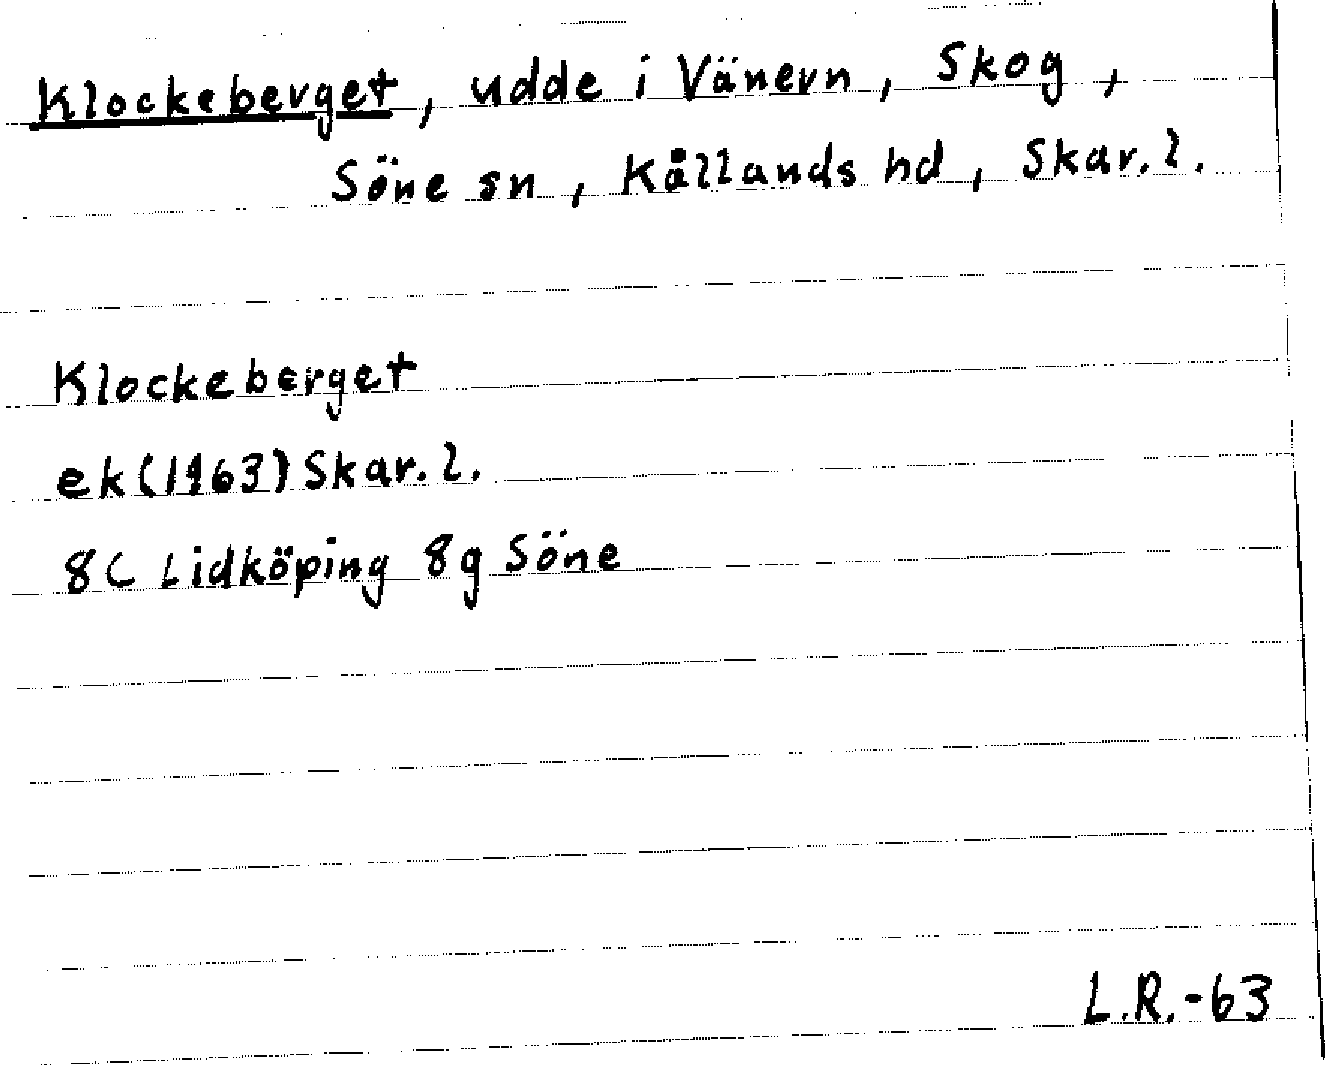 Klockeberget, udde i Vänern, Skog,
Söne sn, Kållands hd, Skar.l.
Klockeberget
ek(1963)Skar.l.
8C Lidköping 8g Söne
L.R.-63